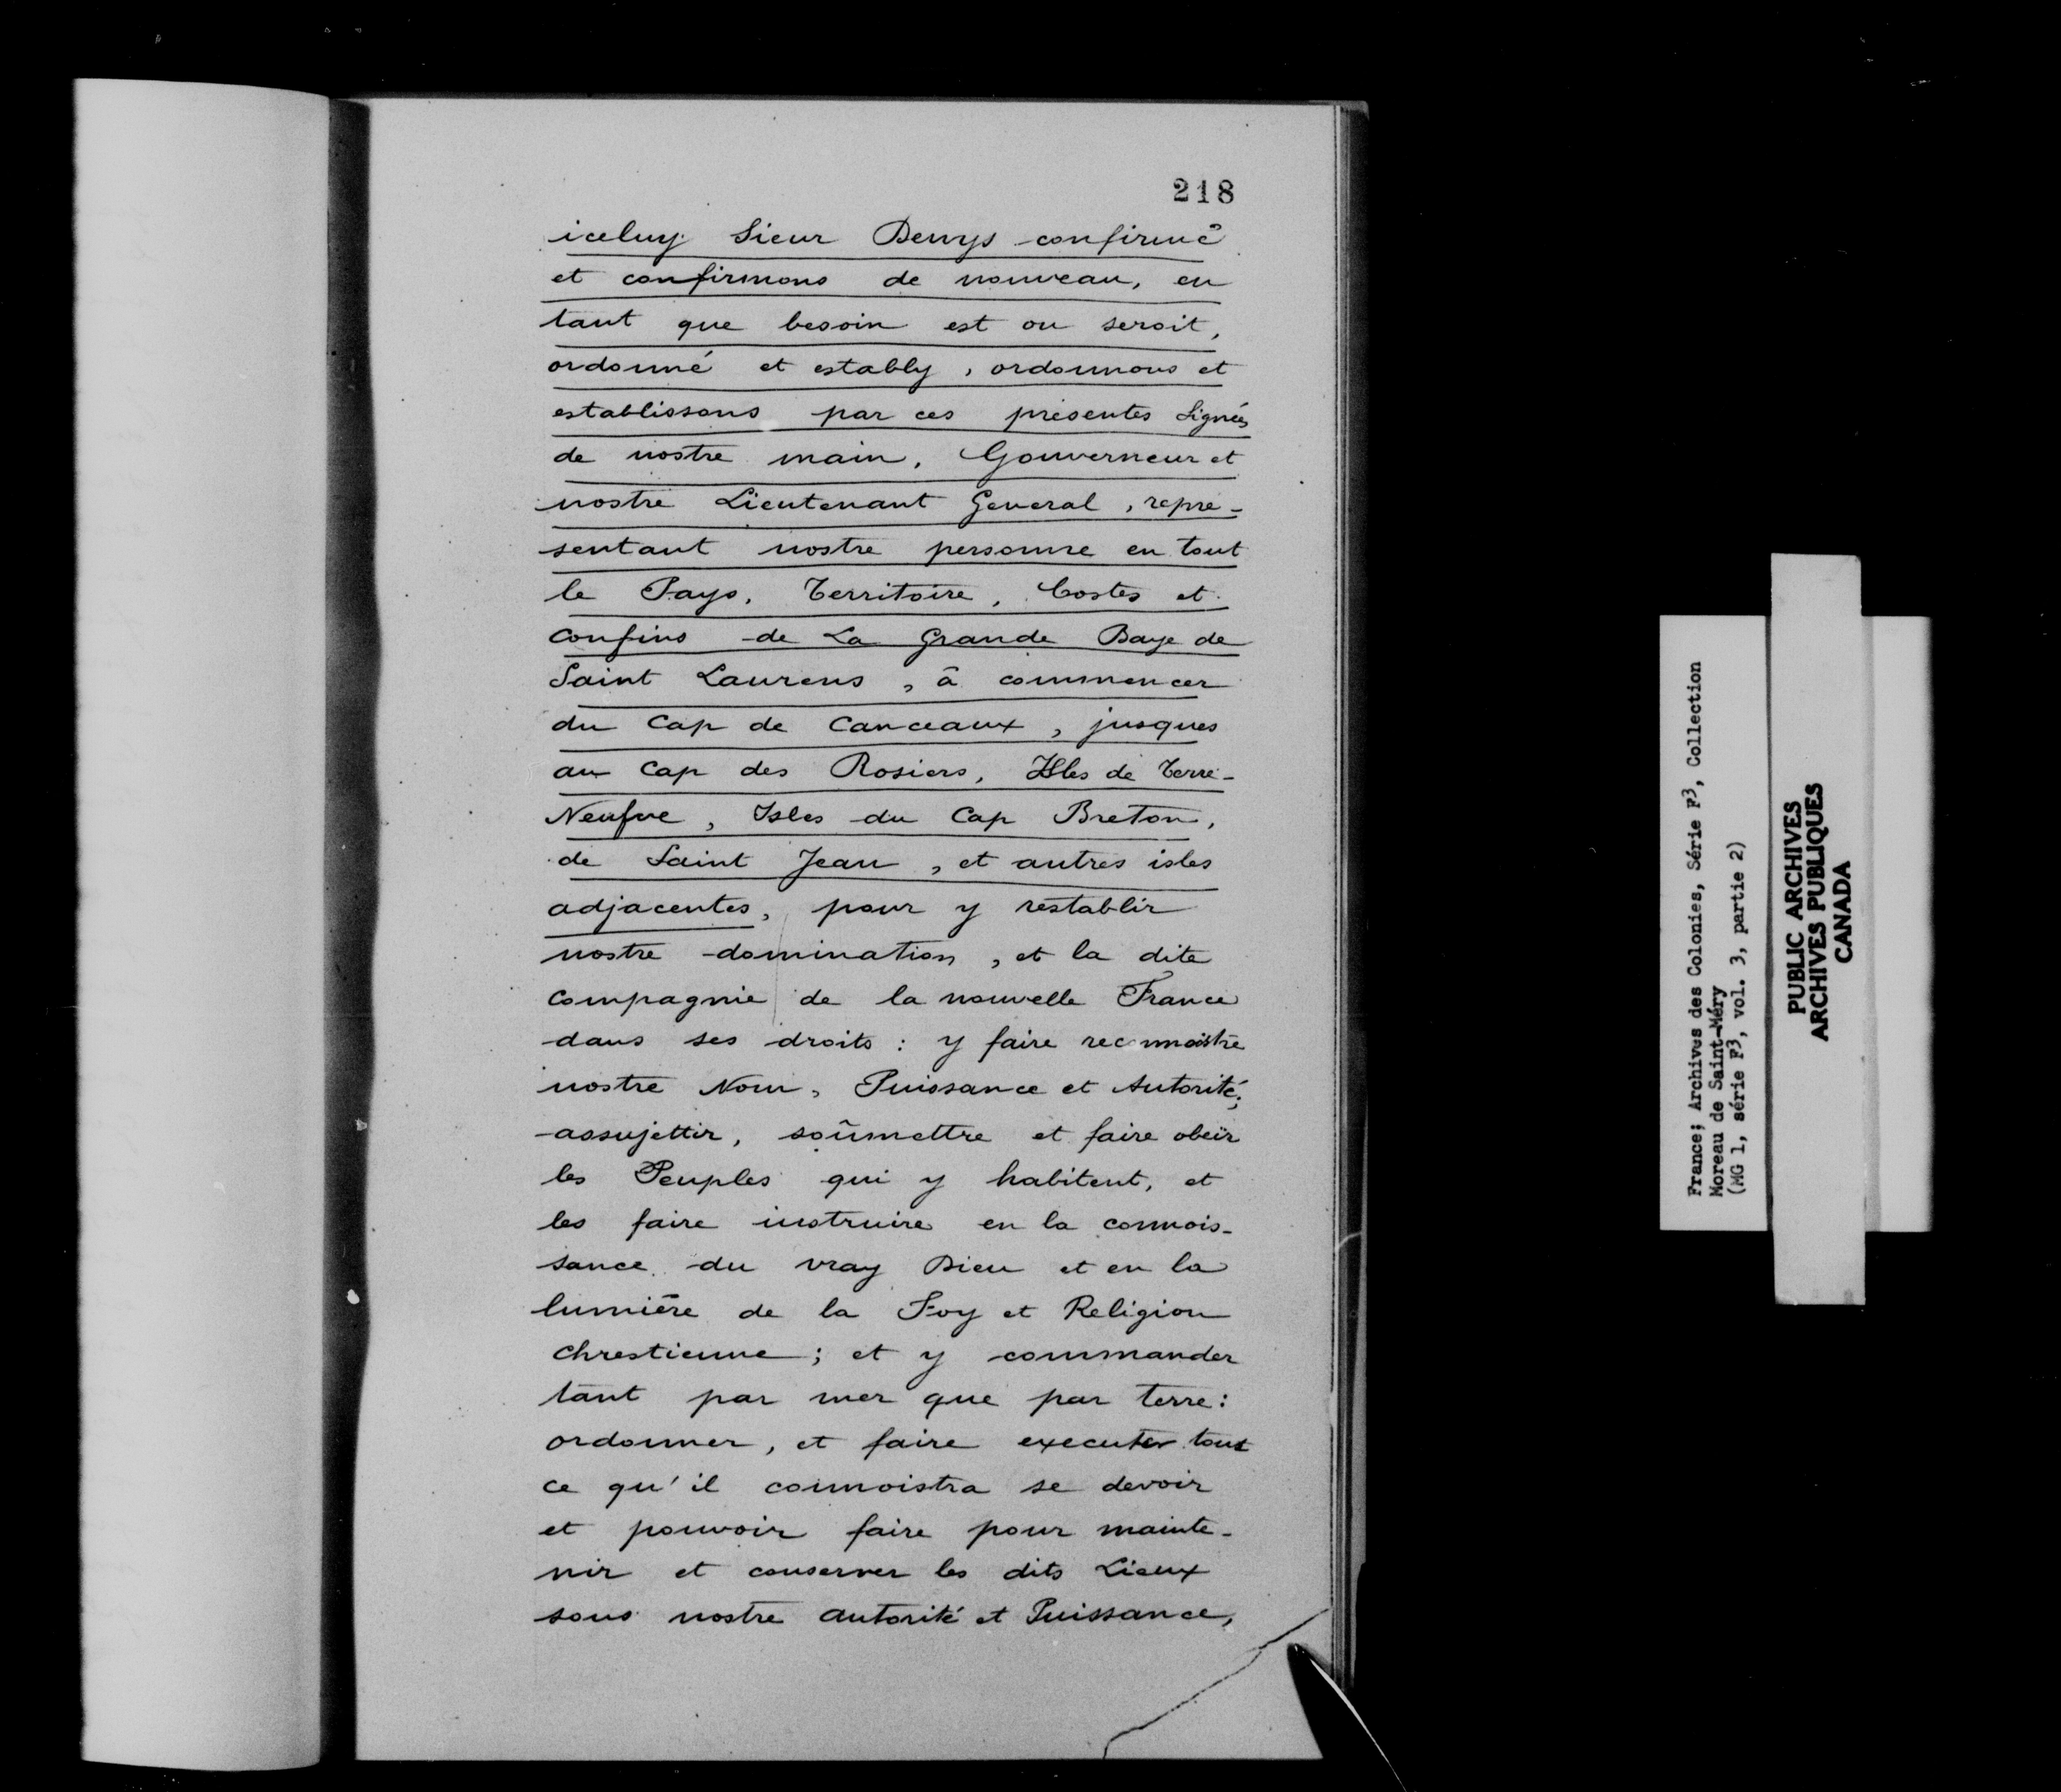 218
iceluy Sieur Denys confirmé
et confirmons de nouveau, en
tant que besoin est ou seroit,
ordonné et estably, ordonnons et
establissons par ces présentes signées
de nostre main, Gouverneur et
nostre Lieutenant General, repre-
sentant nostre personne en tout
le Pays, Territoire, Costes et
confins de La Grande Baye de
Saint Laurens, à commencer
du Cap de Canceaux, jusques
au Cap des Rosiers, Isles de Terre-
Neufve, Isles du Cap Breton,
de Saint Jean, et autres isles
adjacentes, pour y restablir
nostre domination, et la dite
compagnie de la nouvelle France
dans ses droits : y faire reconnoistre
nostre Nom, Puissance et Autorité;
assujettir, soûmettre et faire obeïr
les Peuples qui y habitent, et
les faire instruire en la connois-
sance du vray Dieu et en la
lumière de la Foy et Religion
chrestienne ; et y commander
tant par mer que par terre :
ordonner, et faire executer tout
ce qu'il connoistra se devoir
et pouvoir faire pour mainte-
nir et conserver les dits Lieux
sous nostre autorité et Puissance,
France; Archives des Colonies, Série F3, Collection
Moreau de Saint-Méry
(MG 1, série F3, vol. 3, partie 2)
PUBLIC ARCHIVES
ARCHIVES PUBLIQUES
CANADA